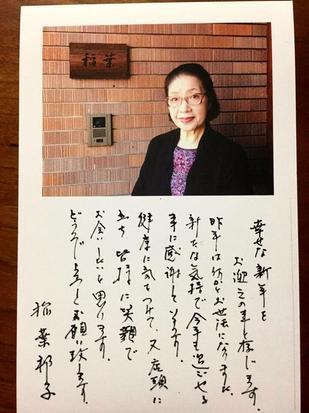 稲葉
幸せな新年を
お迎えの事と存じます
昨年は何かとお世話になりました
新たな気持で今年も過ごせる
事に感謝しております。
健康に気をつけて、又店頭に
立ち皆様に笑顔で
お会いしたいと思います。
どうぞよろしくお願い致します。
稲葉邦子